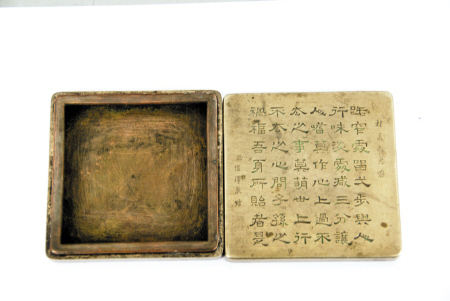 路窄處留一步與人
行味濃處減三分讓
人嗜莫作心上過不
去之事莫萌世上行
不去之心問子孫之
禍福吾身所貽者是